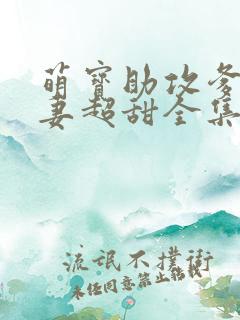 萌寳助攻爹
妻超甜全集
流氓不撲街
未任同意禁止転載